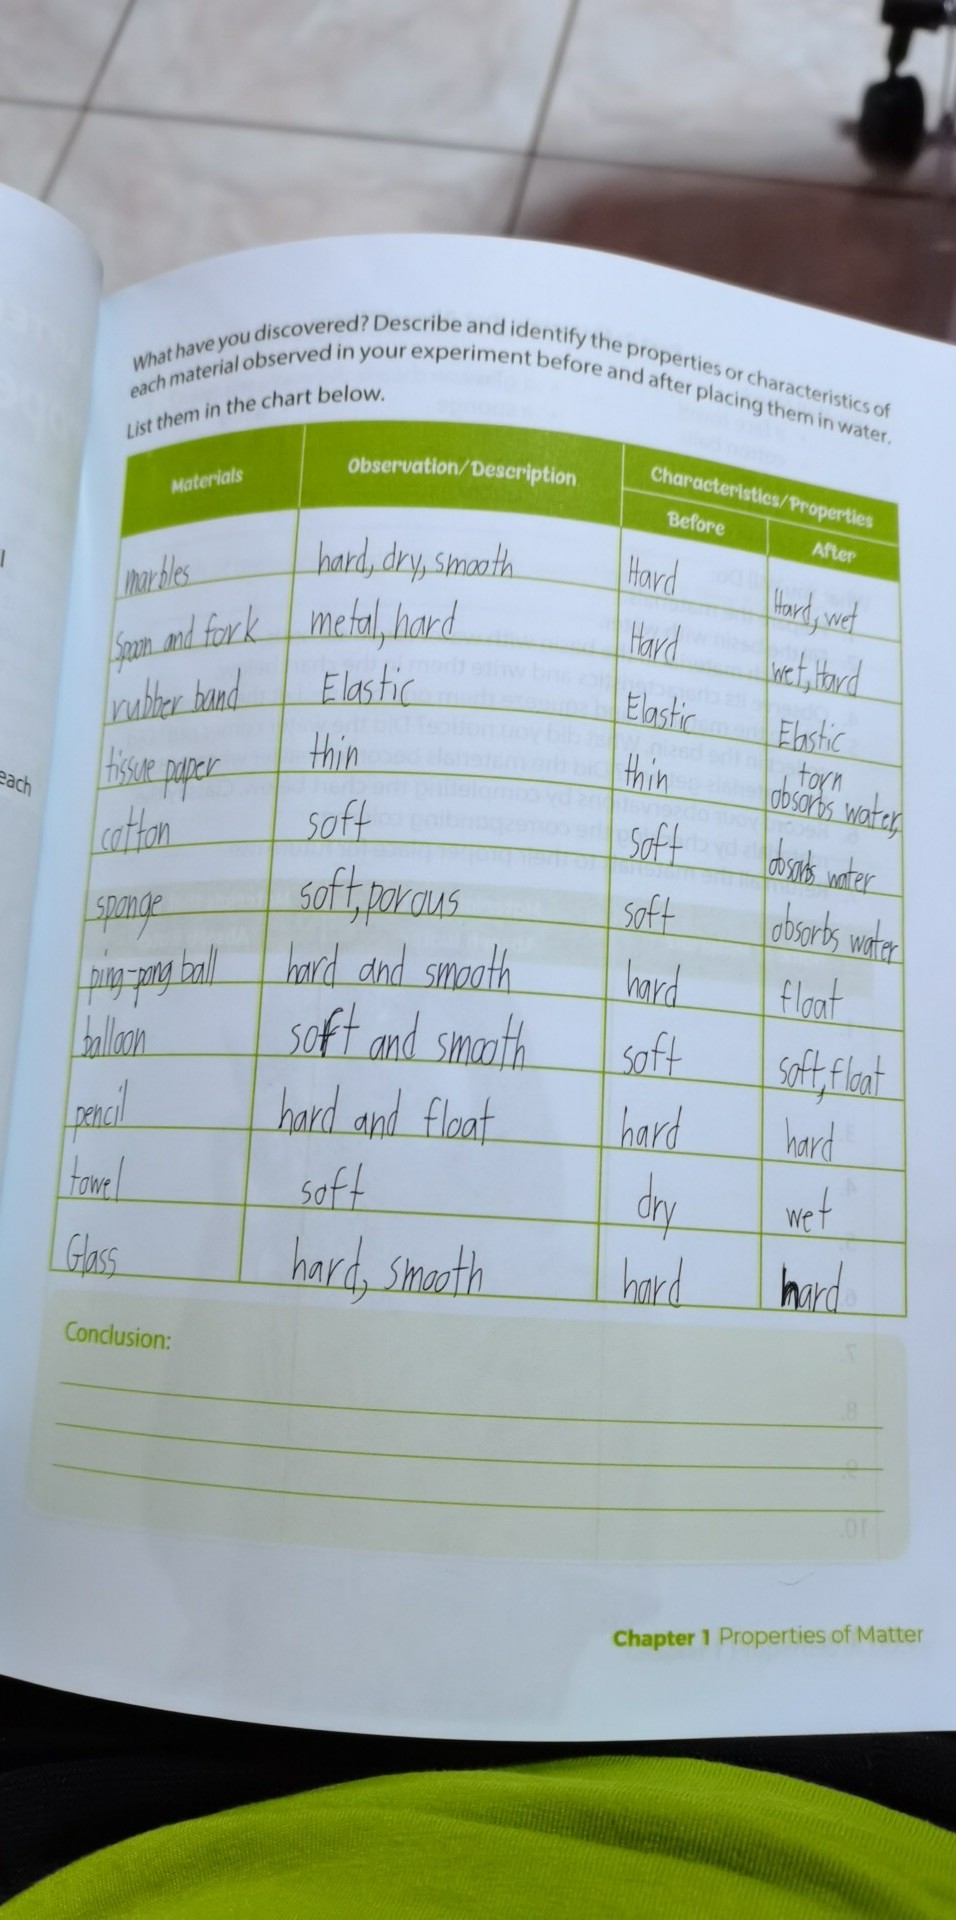 What have you discovered? Describe and identify the properties or characteristics of
each material observed in your experiment before and after placing them in water.
List them in the chart below.
Materials Observation/Description Characteristics/Properties
Before After
marbles hard, dry, smooth Hard Hard, wet
Spoon and fork metal, hard Hard wet, Hard
rubber band Elastic Elastic Elastic
tissue paper thin thin torn
absorbs water,
cotton soft soft absorbs water
sponge soft, porous soft absorbs water
ping-pong ball hard and smooth hard float
balloon soft and smooth soft soft, float
pencil hard and float hard hard
towel soft dry wet
Glass hard, smooth hard hard
Conclusion:
Chapter 1 Properties of Matter
each